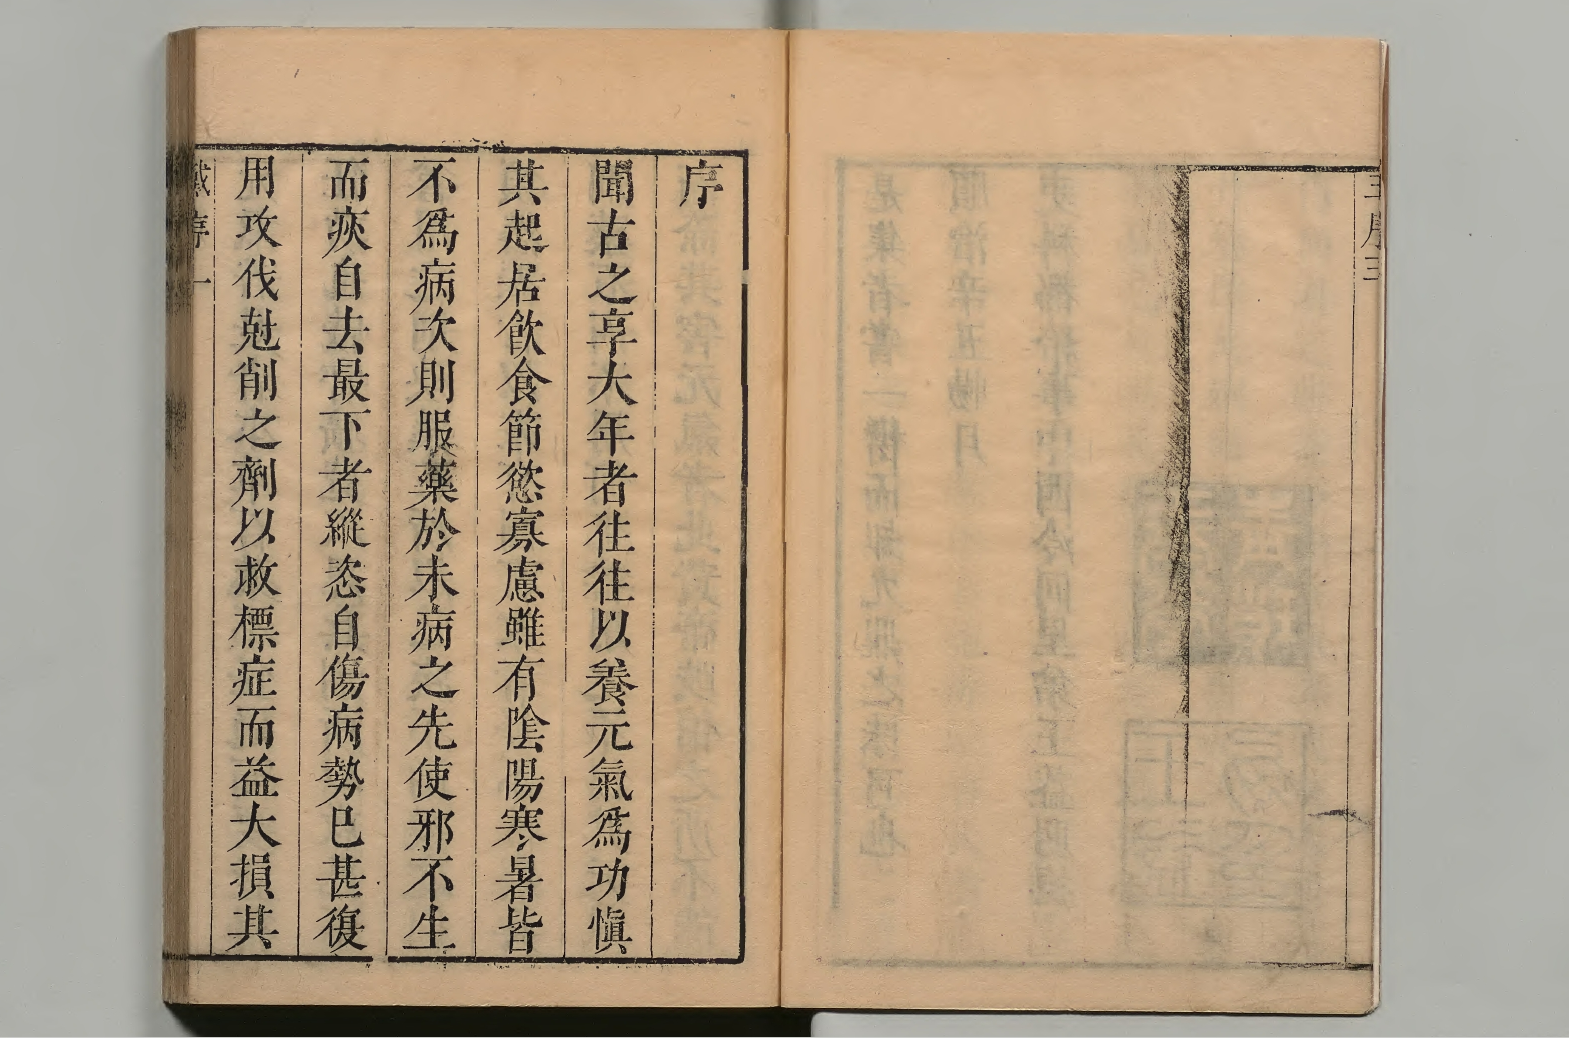 王序三
序
聞古之享大年者往往以養元氣爲功愼
其起居飮食節慾寡慮雖有陰陽寒暑皆
不爲病次則服藥於未病之先使邪不生
而疢自去最下者縱恣自傷病勢巳甚復
用攻伐尅削之劑以救標症而益大損其
戴序一